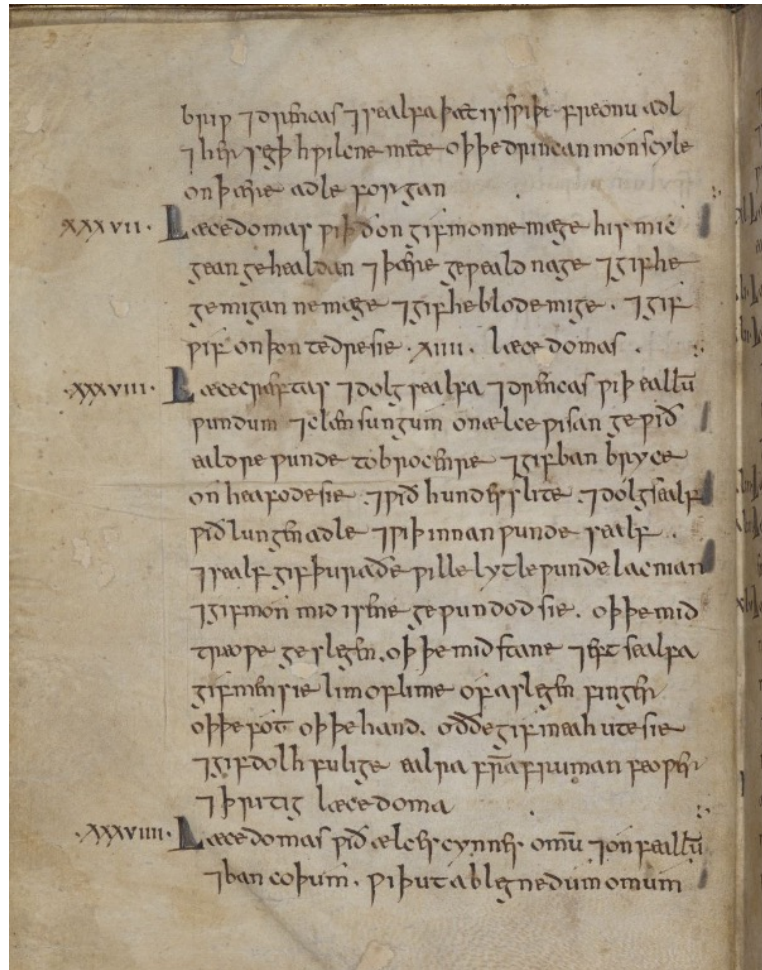 briƿ ⁊ drencas ⁊ sealfa þæt is sƿiþe frecnu adl
⁊ her segþ hƿilcne mete oþþe drincan mon scyle
on þære adle forgan
XXXVII. Læcedomas ƿiþ ðon gif monne mæge his mic
gean gehealdan ⁊ þære geƿeald nage ⁊ gif he
gemigan ne mæge ⁊ gif he blode mige. ⁊ gif
ƿif on þon tedre sie .XIIII. læcedomas.
.XXXVIII. Læcecræftas ⁊ dolgsealfa ⁊ drencas ƿiþ eallū
ƿundum ⁊ clænsungum on ælce ƿisan ge ƿið
ealdre ƿunde tobrocenre ⁊ gif ban bryce
on heafode sie ⁊ ƿið hundes slite ⁊ dolgsealf
ƿið lungenadle ⁊ ƿiþ innanƿunde sealf.
⁊ sealf gif þu raðe ƿille lytle ƿunde lacnian
⁊ gif mon mid isene geƿundod sie. oþþe mid
treoƿe geslegen. oþþe mid stane ⁊ eft sealfa
gif men sie lim of lime of aslegen finger
oþþe fot oþþe hand. oððe gif mearh ute sie
⁊ gif dolh fulige ealra frā fruman feoƿer
⁊ þritig læcedoma
.XXXVIIII. Læcedomas ƿið ælces cynnes omū ⁊ onfeallū
⁊ bancoþum. ƿiþ utablegnedum omum